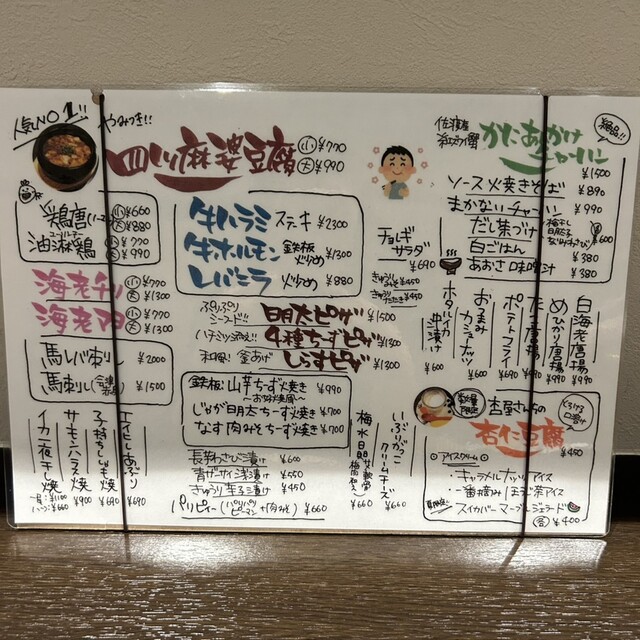 人気NO1!!
やみつき!!
四川麻婆豆腐 小¥770 大¥990
鶏唐 小¥660 大¥880
油淋鶏 ¥770 大¥990
海老チリ 小¥770 大¥1300
海老マヨ 小¥770 大¥1300
馬レバ刺し ¥2000
馬刺し ¥1500
牛ハラミ ステーキ ¥2300
牛ホルモン 鉄板炒め ¥1300
レバニラ 炒め ¥880
チョレギサラダ ¥690
明太ピザ ¥1500
4種ちーずピザ ¥1300
和風! 釜あげ しらすピザ ¥1300
鉄板! 山芋ちーず焼き ¥990
〜お好み焼風〜
じゃが明太ちーず焼き ¥700
なす肉みそちーず焼き ¥700
長芋わさび漬け ¥600
青ザーサイ浅漬け ¥450
きゅうり辛子漬け ¥450
パリピィー(パリパリピーマン+肉みそ) ¥660
エイヒレあぶり ¥690
子持ちししゃも焼 ¥690
サーモンハラス焼 ¥900
イカ一夜干し焼 一杯¥1100 ハーフ¥660
いぶりがっこクリームチーズ ¥660
梅水晶 ¥660
佐渡島
かにあんかけチャーハン ¥1500
絶品!!
ソース焼きそば ¥890
まかないチャーハン ¥990
だし茶づけ ¥600
白ごはん ¥380
あおさ味噌汁 ¥380
白海老唐揚 ¥990
めひかり唐揚 ¥990
たこ唐揚 ¥690
ポテトフライ ¥690
おつまみカシューナッツ ¥600
ホタルイカ沖漬け ¥600
杏仁豆腐 ¥450
アイスクリーム
・キャラメルナッツアイス
・一番摘みほうじ茶アイス
・スイカバーマーブルジェラード
各¥400